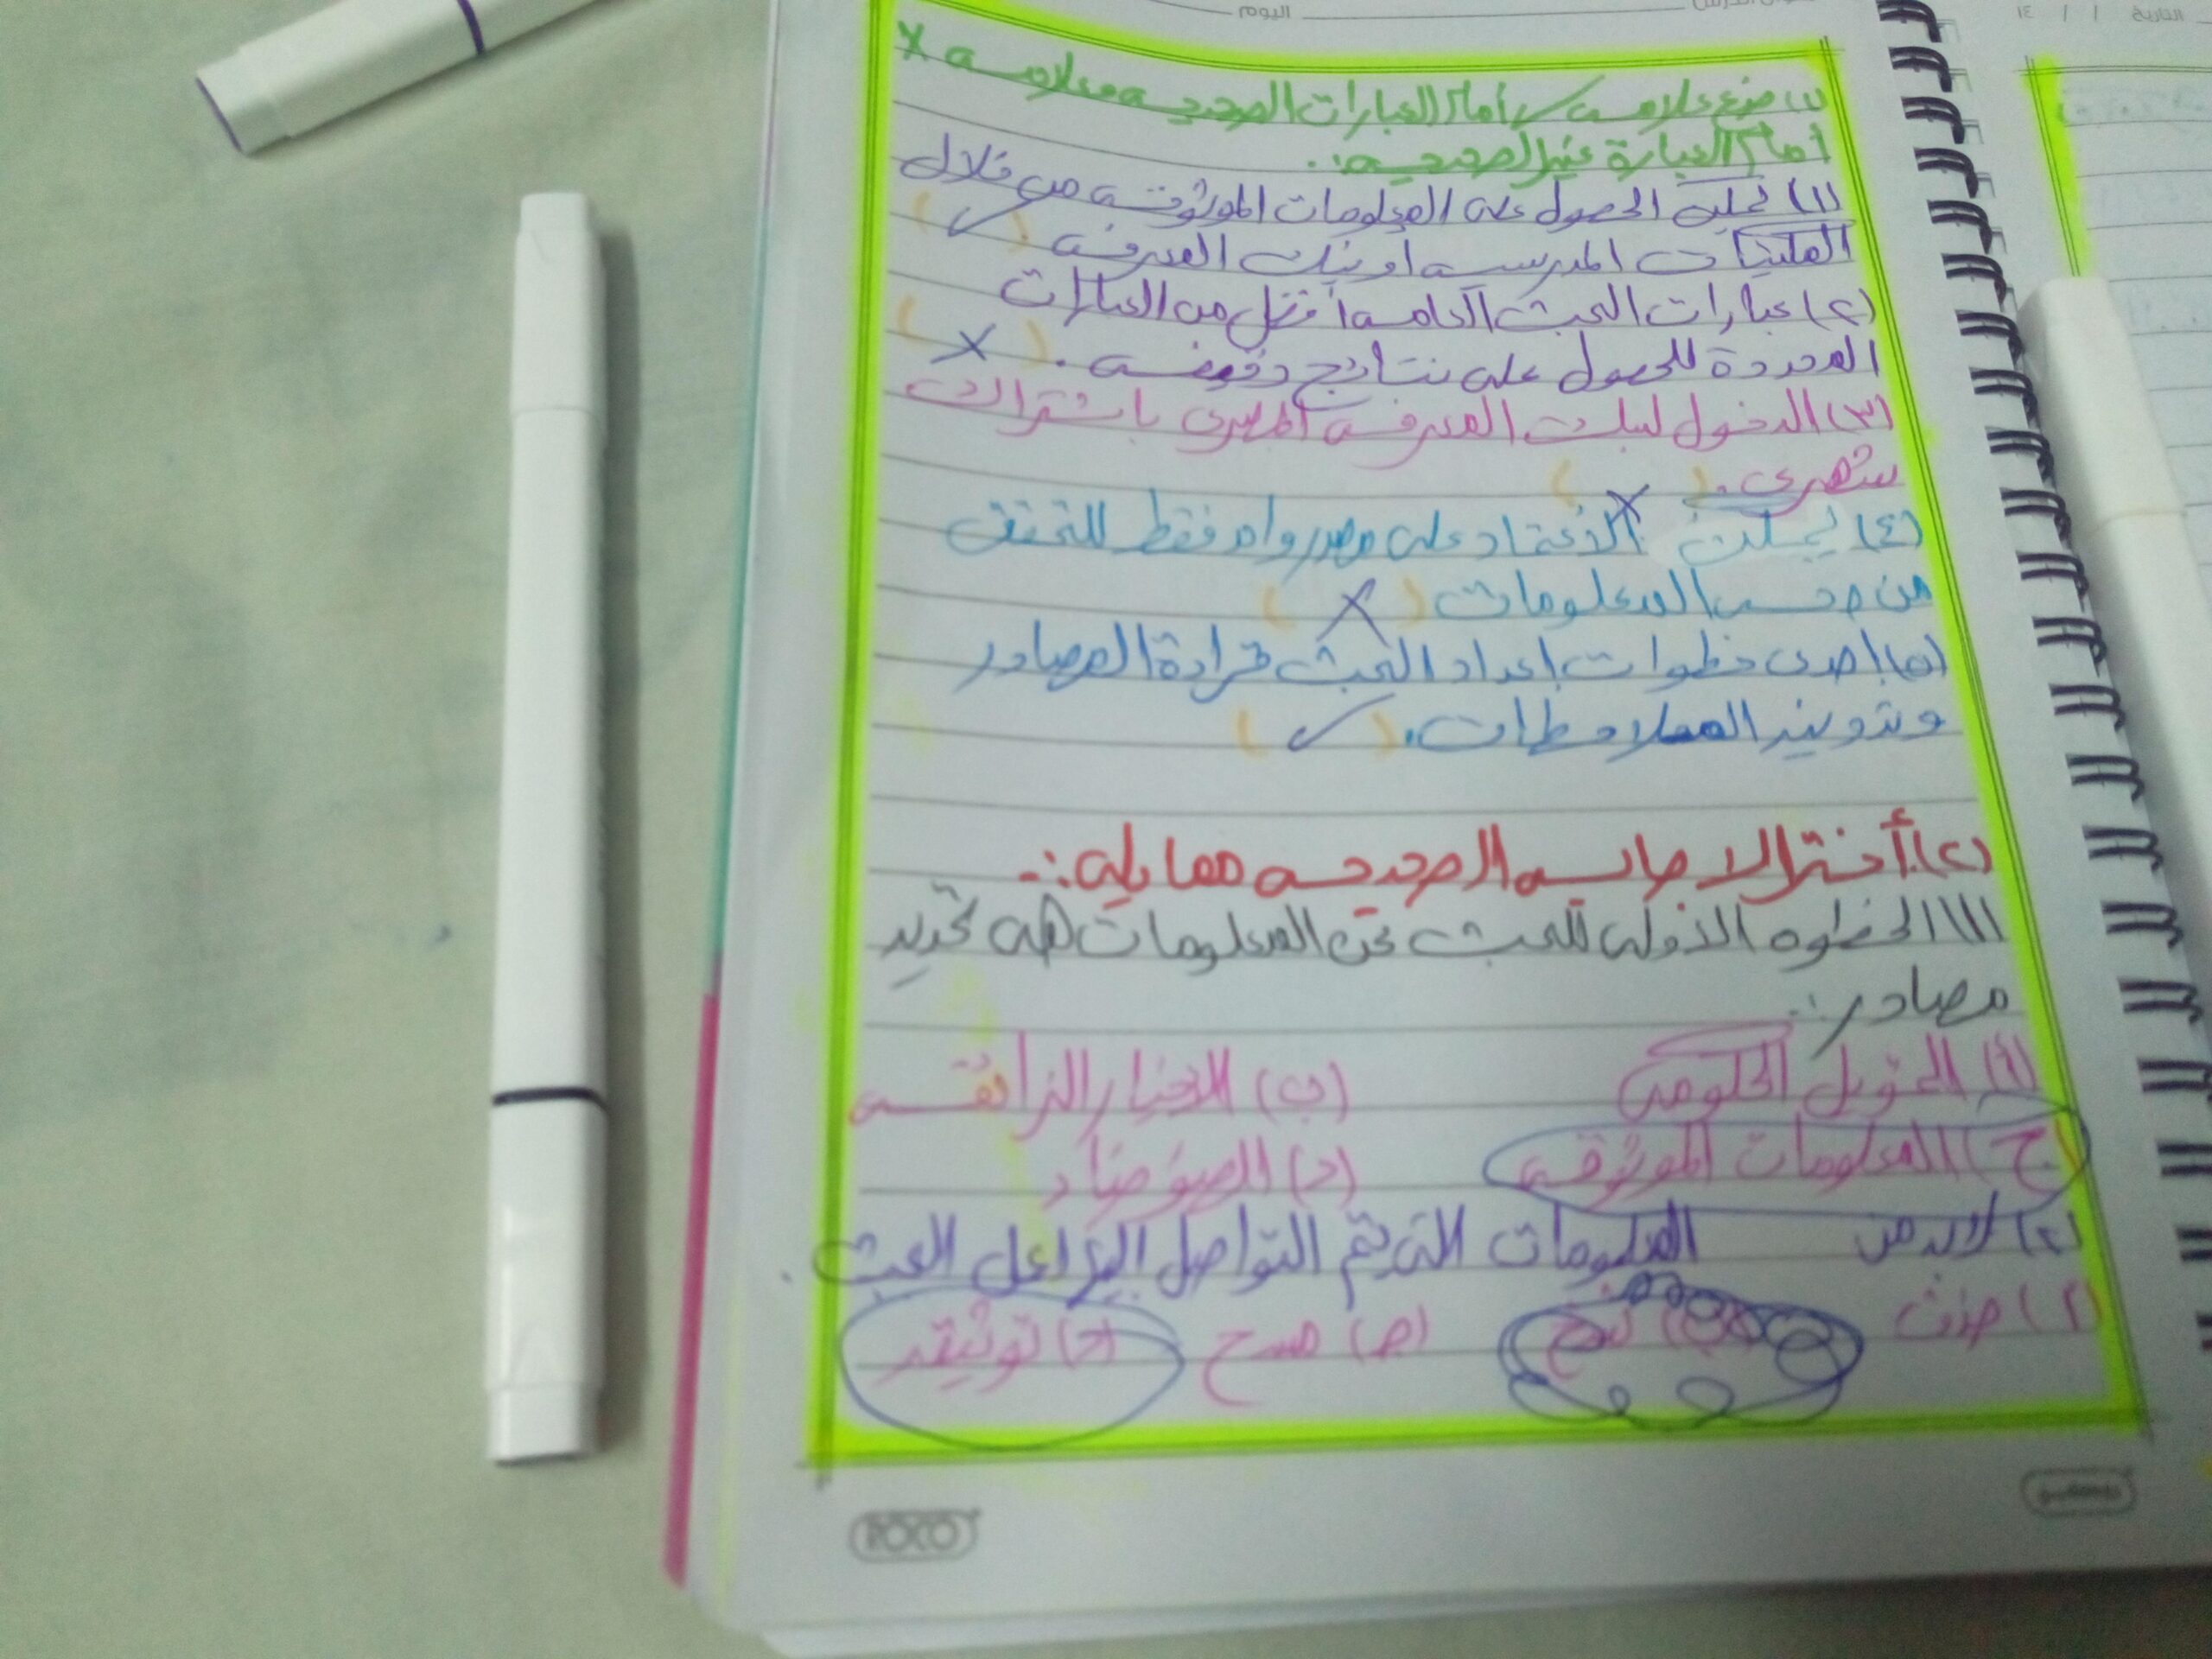 اليوم
١) ضع علامه ✓ أمام العبارات الصحيحه وعلامه X
أمام العبارة غير الصحيحه:.
(١) يمكن الحصول على المعلومات الموثوقه من خلال
المكتبات المدرسيه او بنك المعرفه. (✓)
(٢) عبارات البحث العامه أفضل من العبارات
المحددة للحصول على نتائج دقيقه. (X)
(٣) الدخول لبنك المعرفه المصرى باشتراك
شهرى. (X)
(٤) يمكن الاعتماد على مصدر واحد فقط للتحقق
من صحه المعلومات (X)
(٥) إحدى خطوات إعداد البحث قراءة المصادر
وتدوين الملاحظات. (✓)
(٢) أختر الاجابه الصحيحه مما يلى:.
(١) الخطوه الأولى للبحث عن المعلومات هى تحديد
مصادر:.
(أ) التمويل الحكومى (ب) الأخبار الزائفه
(ج) المعلومات الموثوقه (د)
(٢) لابد من المعلومات التى تم التواصل إليها اجل البحث.
(أ) حذف نسخ مسح (د) توثيق
ROCO